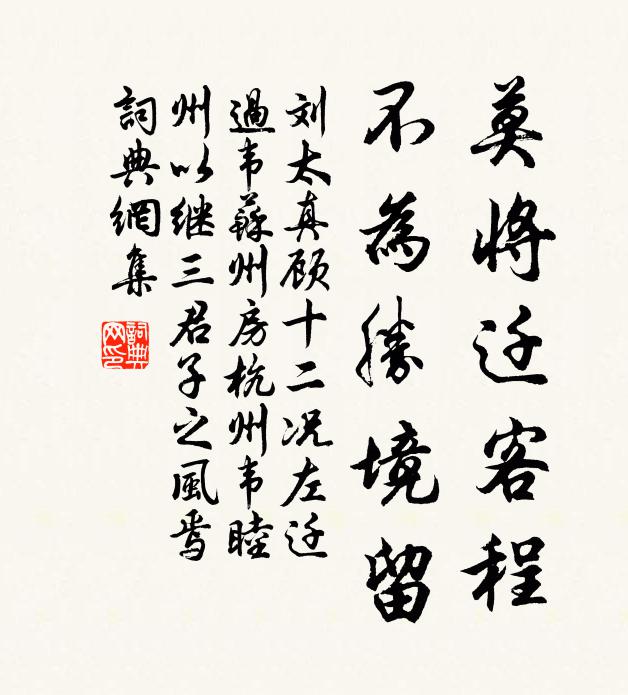 莫將迁客程
不為勝境留
刘太真顾十二况左迁
過韦蘇州房杭州韦睦
州以继三君子之風焉
詞典網集
詞典網印